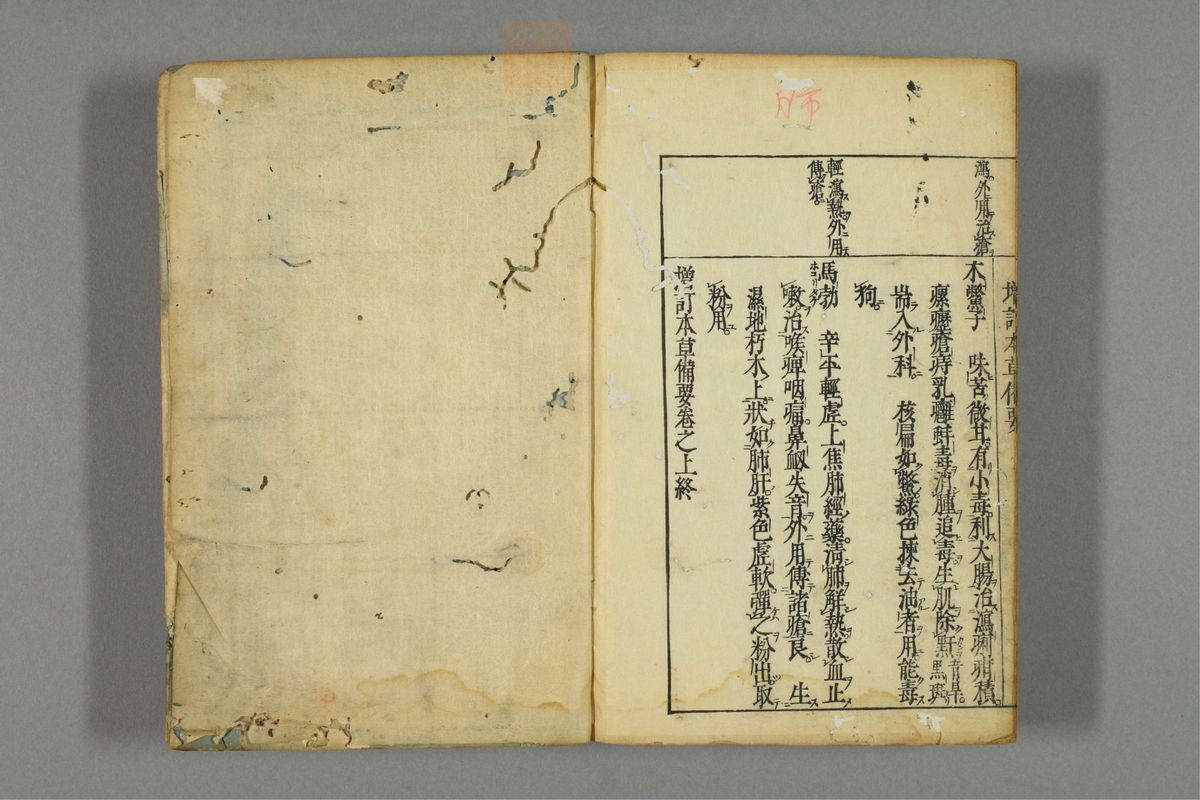 增訂本草備要
瀉外用治瘡
木鱉子 味苦微甘有小毒利大腸治瀉痢疳積
瘰癧瘡痔乳癰蚌毒消腫追毒生肌除黑斑音旱
耑入外科 核扁如鱉綠色揀去油者用能毒
狗
輕瀉熱外用
傅瘡
馬勃 辛平輕虛上焦肺經藥清肺解熱散血止
嗽治喉痺咽痛鼻衄失音外用傅諸瘡良 生
濕地朽木上狀如肺肝紫色虛軟彈之粉出取
粉用
增訂本草備要卷之上終